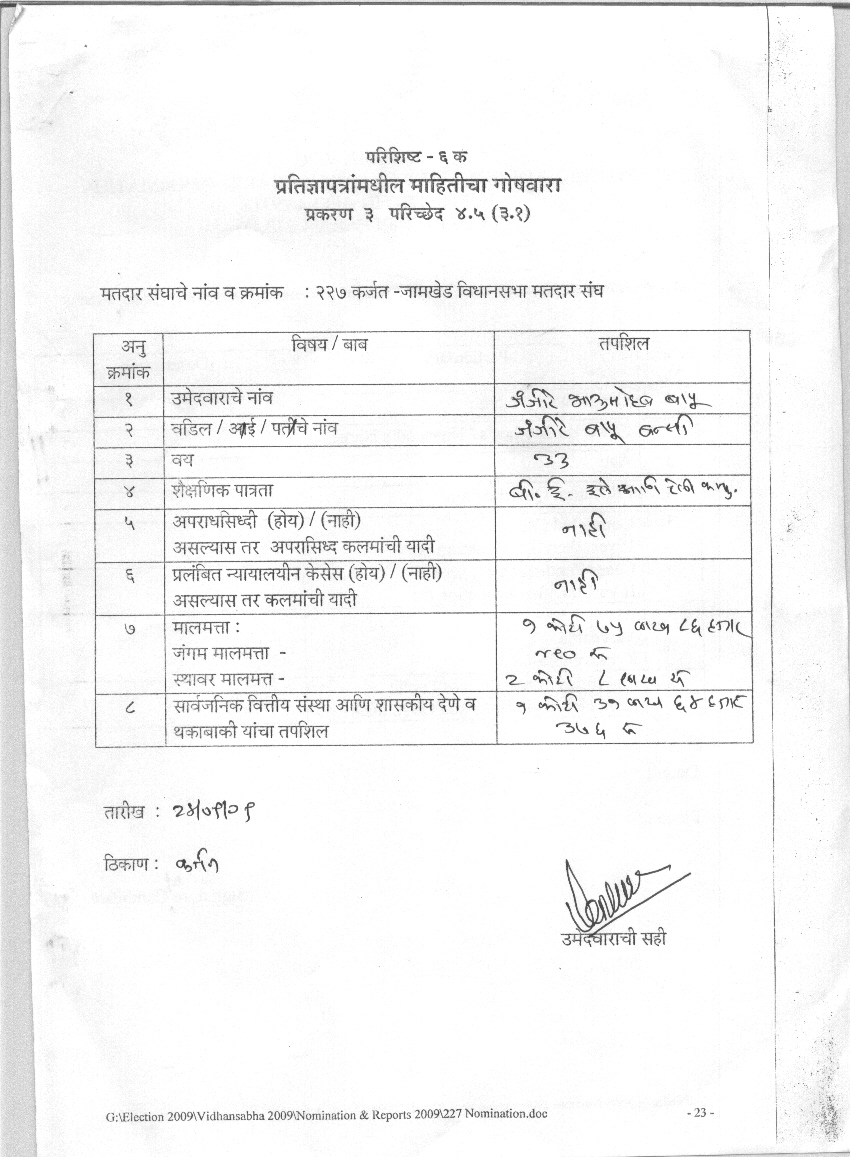 परिशिष्ट - ६ क
प्रतिज्ञापत्रांमधील माहितीचा गोषवारा
प्रकरण ३ परिच्छेद ४.५ (३.१)
मतदार संघाचे नांव व क्रमांक : २२७ कर्जत -जामखेड विधानसभा मतदार संघ
अनु क्रमांक विषय / बाब तपशिल
१ उमेदवाराचे नांव जंजीरे बापू
२ वडिल / आई / पतीचे नांव जंजीरे बापू बन्सी
३ वय ३३
४ शैक्षणिक पात्रता बी. ई. इले आणि टेली
५ अपराधसिध्दी (होय) / (नाही) नाही
असल्यास तर अपरासिध्द कलमांची यादी
६ प्रलंबित न्यायालयीन केसेस (होय) / (नाही) नाही
असल्यास तर कलमांची यादी
७ मालमत्ता : १ कोटी ७५ लाख ८६ हजार
जंगम मालमत्ता - रु
स्थावर मालमत्त - २ कोटी ८ लाख रु
८ सार्वजनिक वित्तीय संस्था आणि शासकीय देणे व १ कोटी ३१ लाख ६४ हजार
थकाबाकी यांचा तपशिल ३७६ रु
तारीख : २४/०९/०९
ठिकाण : कर्जत
उमेदवाराची सही
G:\Election 2009\Vidhansabha 2009\Nomination & Reports 2009\227 Nomination.doc - 23 -